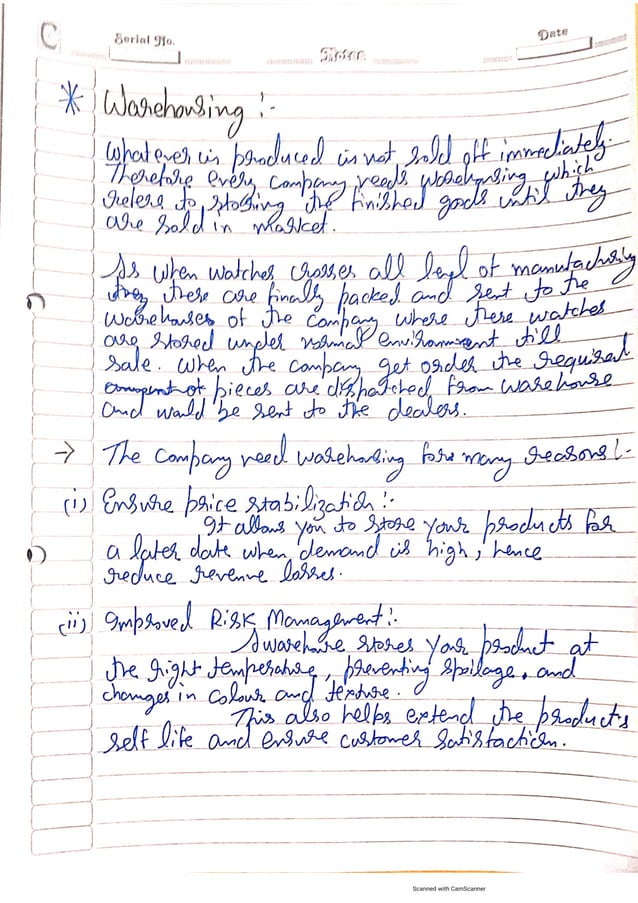 C
Serial No.
Date
Notes
* Warehousing :-
Whatever is produced is not sold off immediately.
Therefore every company needs warehousing which
refers to storing the finished goods until they
are sold in market.
As when watches crosses all level of manufacturing
they these are finally packed and sent to the
warehouses of the company where these watches
are stored under normal environment till
sale. When the company get order the required
of pieces are dispatched from warehouse
and would be sent to the dealers.
→ The company need warehousing for many reasons :-
(i) Ensure price stabilization :-
It allows you to store your products for
a later date when demand is high, hence
reduce revenue losses.
(ii) Improved Risk Management :-
A warehouse stores your product at
the right temperature, preventing spoilage, and
changes in colour and texture.
This also helps extend the products
self life and ensure customer satisfaction.
Scanned with CamScanner